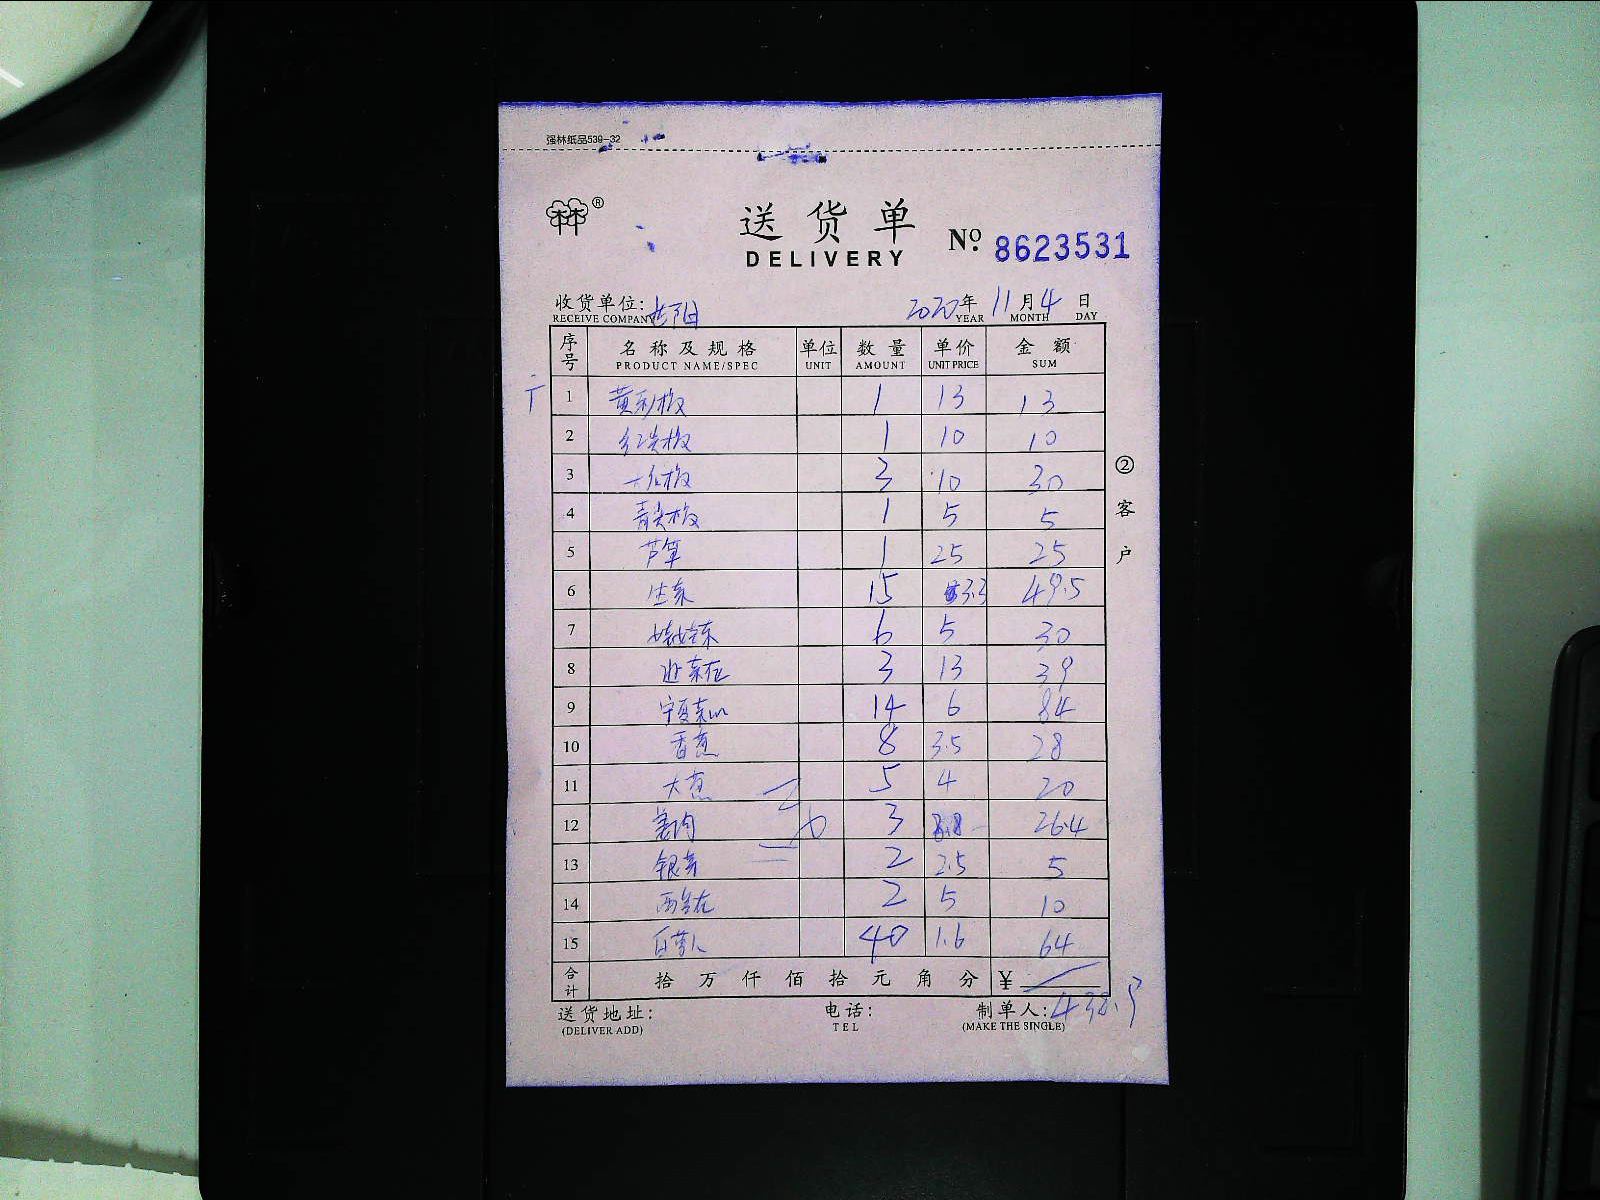 强林纸品539-32
®
送货单
DELIVERY
№ 8623531
收货单位:
RECEIVE COMPANY
2020年 11月4日
YEAR MONTH DAY
序号 名称及规格 单位 数量 单价 金额
PRODUCT NAME/SPEC UNIT AMOUNT UNIT PRICE SUM
1 黄彩椒 1 13 13
2 红尖椒 1 10 10
3 椒 3 10 30
4 青尖椒 1 5 5
5 芦笋 1 25 25
6 生菜 15 3.3 49.5
7 娃娃菜 6 5 30
8 3 13 39
9 宁夏菜心 14 6 84
10 香葱 8 3.5 28
11 大葱 5 4 20
12 姜肉 3 8.8 26.4
13 银芽 2 2.5 5
14 西 2 5 10
15 白 40 1.6 64
合计 拾万仟佰拾元角分 ¥
438.9
送货地址: 电话: 制单人:
(DELIVER ADD) TEL (MAKE THE SINGLE)
②客户